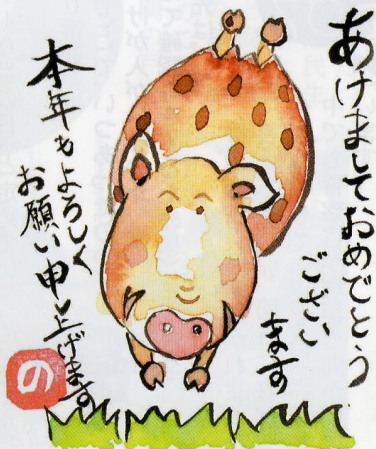 あけましておめでとう
ござい
ます
本年もよろしく
お願い申し上げます
の